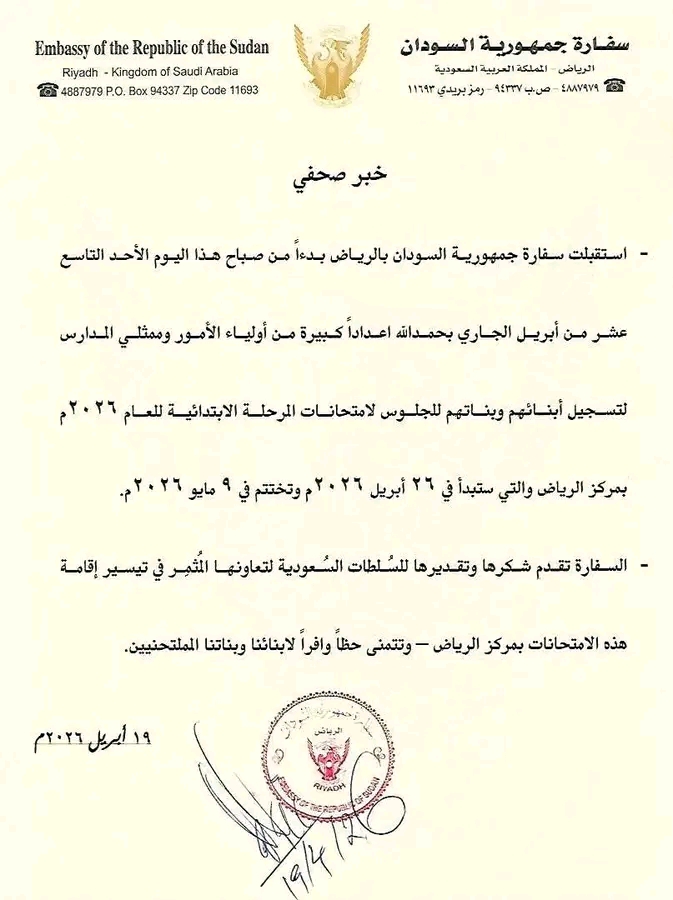 Embassy of the Republic of the Sudan
Riyadh - Kingdom of Saudi Arabia
☎ 4887979 P.O. Box 94337 Zip Code 11693
سفارة جمهورية السودان
الرياض - المملكة العربية السعودية
☎ ٤٨٨٧٩٧٩ - ص.ب ٩٤٣٣٧ - رمز بريدي ١١٦٩٣
خبر صحفي
- استقبلت سفارة جمهورية السودان بالرياض بدءاً من صباح هذا اليوم الأحد التاسع
عشر من أبريل الجاري بحمدالله اعداداً كبيرة من أولياء الأمور وممثلي المدارس
لتسجيل أبنائهم وبناتهم للجلوس لامتحانات المرحلة الابتدائية للعام ٢٠٢٦م
بمركز الرياض والتي ستبدأ في ٢٦ أبريل ٢٠٢٦م وتختتم في ٩ مايو ٢٠٢٦م.
- السفارة تقدم شكرها وتقديرها للسُلطات السُعودية لتعاونها المُثمِر في تيسير إقامة
هذه الامتحانات بمركز الرياض – وتتمنى حظاً وافراً لابنائنا وبناتنا الملتحنيين.
١٩ أبريل ٢٠٢٦م
سفارة جمهورية السودان
الرياض
RIYADH
EMBASSY OF THE REPUBLIC OF SUDAN
19/4/26